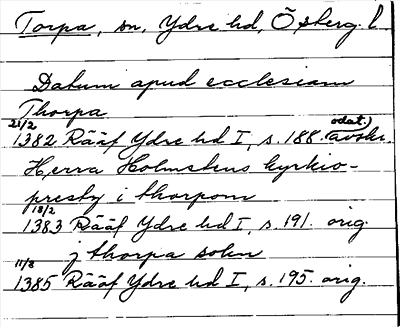 Torpa, sn, Ydre hd, Österg. l.
Datum apud ecclesiam
Thorpa
21/2 odat.)
1382 Rääf Ydre hd I, s. 188. avskr.
Herra Holmstens kyrkio-
presty i thorpom
18/2
1383 Rääf Ydre hd I, s. 191. orig.
j thorpa sokn
11/8
1385 Rääf Ydre hd I, s. 195. orig.